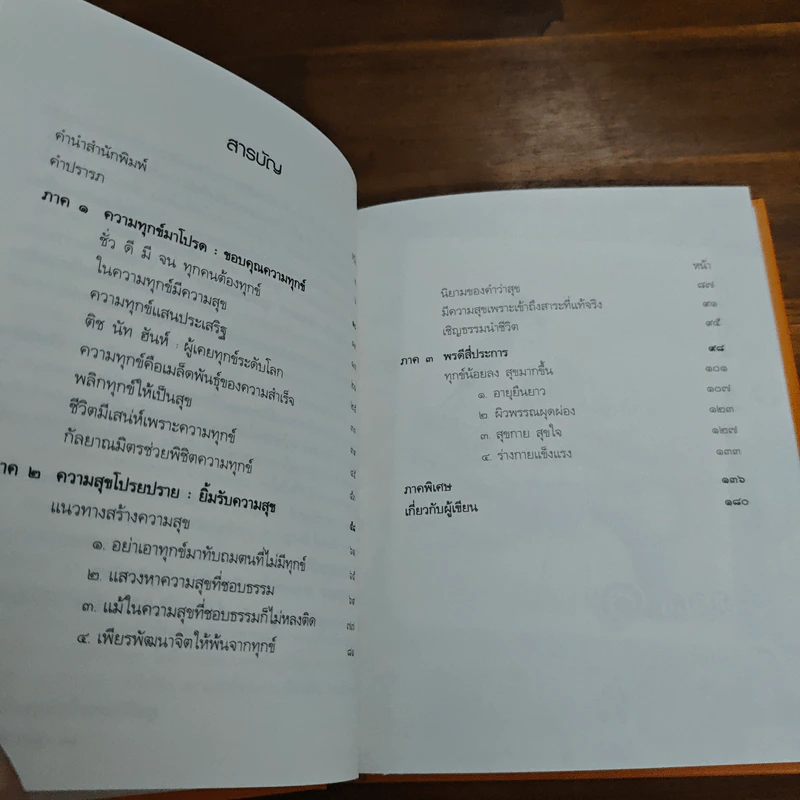 สารบัญ
คำนำสำนักพิมพ์
คำปรารภ
ภาค ๑ ความทุกข์มาโปรด : ขอบคุณความทุกข์
ชั่ว ดี มี จน ทุกคนต้องทุกข์
ในความทุกข์มีความสุข
ความทุกข์แสนประเสริฐ
ติช นัท ฮันห์ : ผู้เคยทุกข์ระดับโลก
ความทุกข์คือเมล็ดพันธุ์ของความสำเร็จ
พลิกทุกข์ให้เป็นสุข
ชีวิตมีเสน่ห์เพราะความทุกข์
กัลยาณมิตรช่วยพิชิตความทุกข์
าค ๒ ความสุขโปรยปราย : ยิ้มรับความสุข
แนวทางสร้างความสุข
๑. อย่าเอาทุกข์มาทับถมตนที่ไม่มีทุกข์
๒. แสวงหาความสุขที่ชอบธรรม
๓. แม้ในความสุขที่ชอบธรรมก็ไม่หลงติด
๔. เพียรพัฒนาจิตให้พ้นจากทุกข์
หน้า
นิยามของคำว่าสุข ๘๗
มีความสุขเพราะเข้าถึงสาระที่แท้จริง ๙๑
เชิญธรรมนำชีวิต ๙๕
ภาค ๓ พรดีสี่ประการ ๙๘
ทุกข์น้อยลง สุขมากขึ้น ๑๐๑
๑. อายุยืนยาว ๑๐๗
๒ ผิวพรรณผุดผ่อง ๑๒๓
๓. สุขกาย สุขใจ ๑๒๗
๔. ร่างกายแข็งแรง ๑๓๓
ภาคพิเศษ ๑๓๖
เกี่ยวกับผู้เขียน ๑๘๐